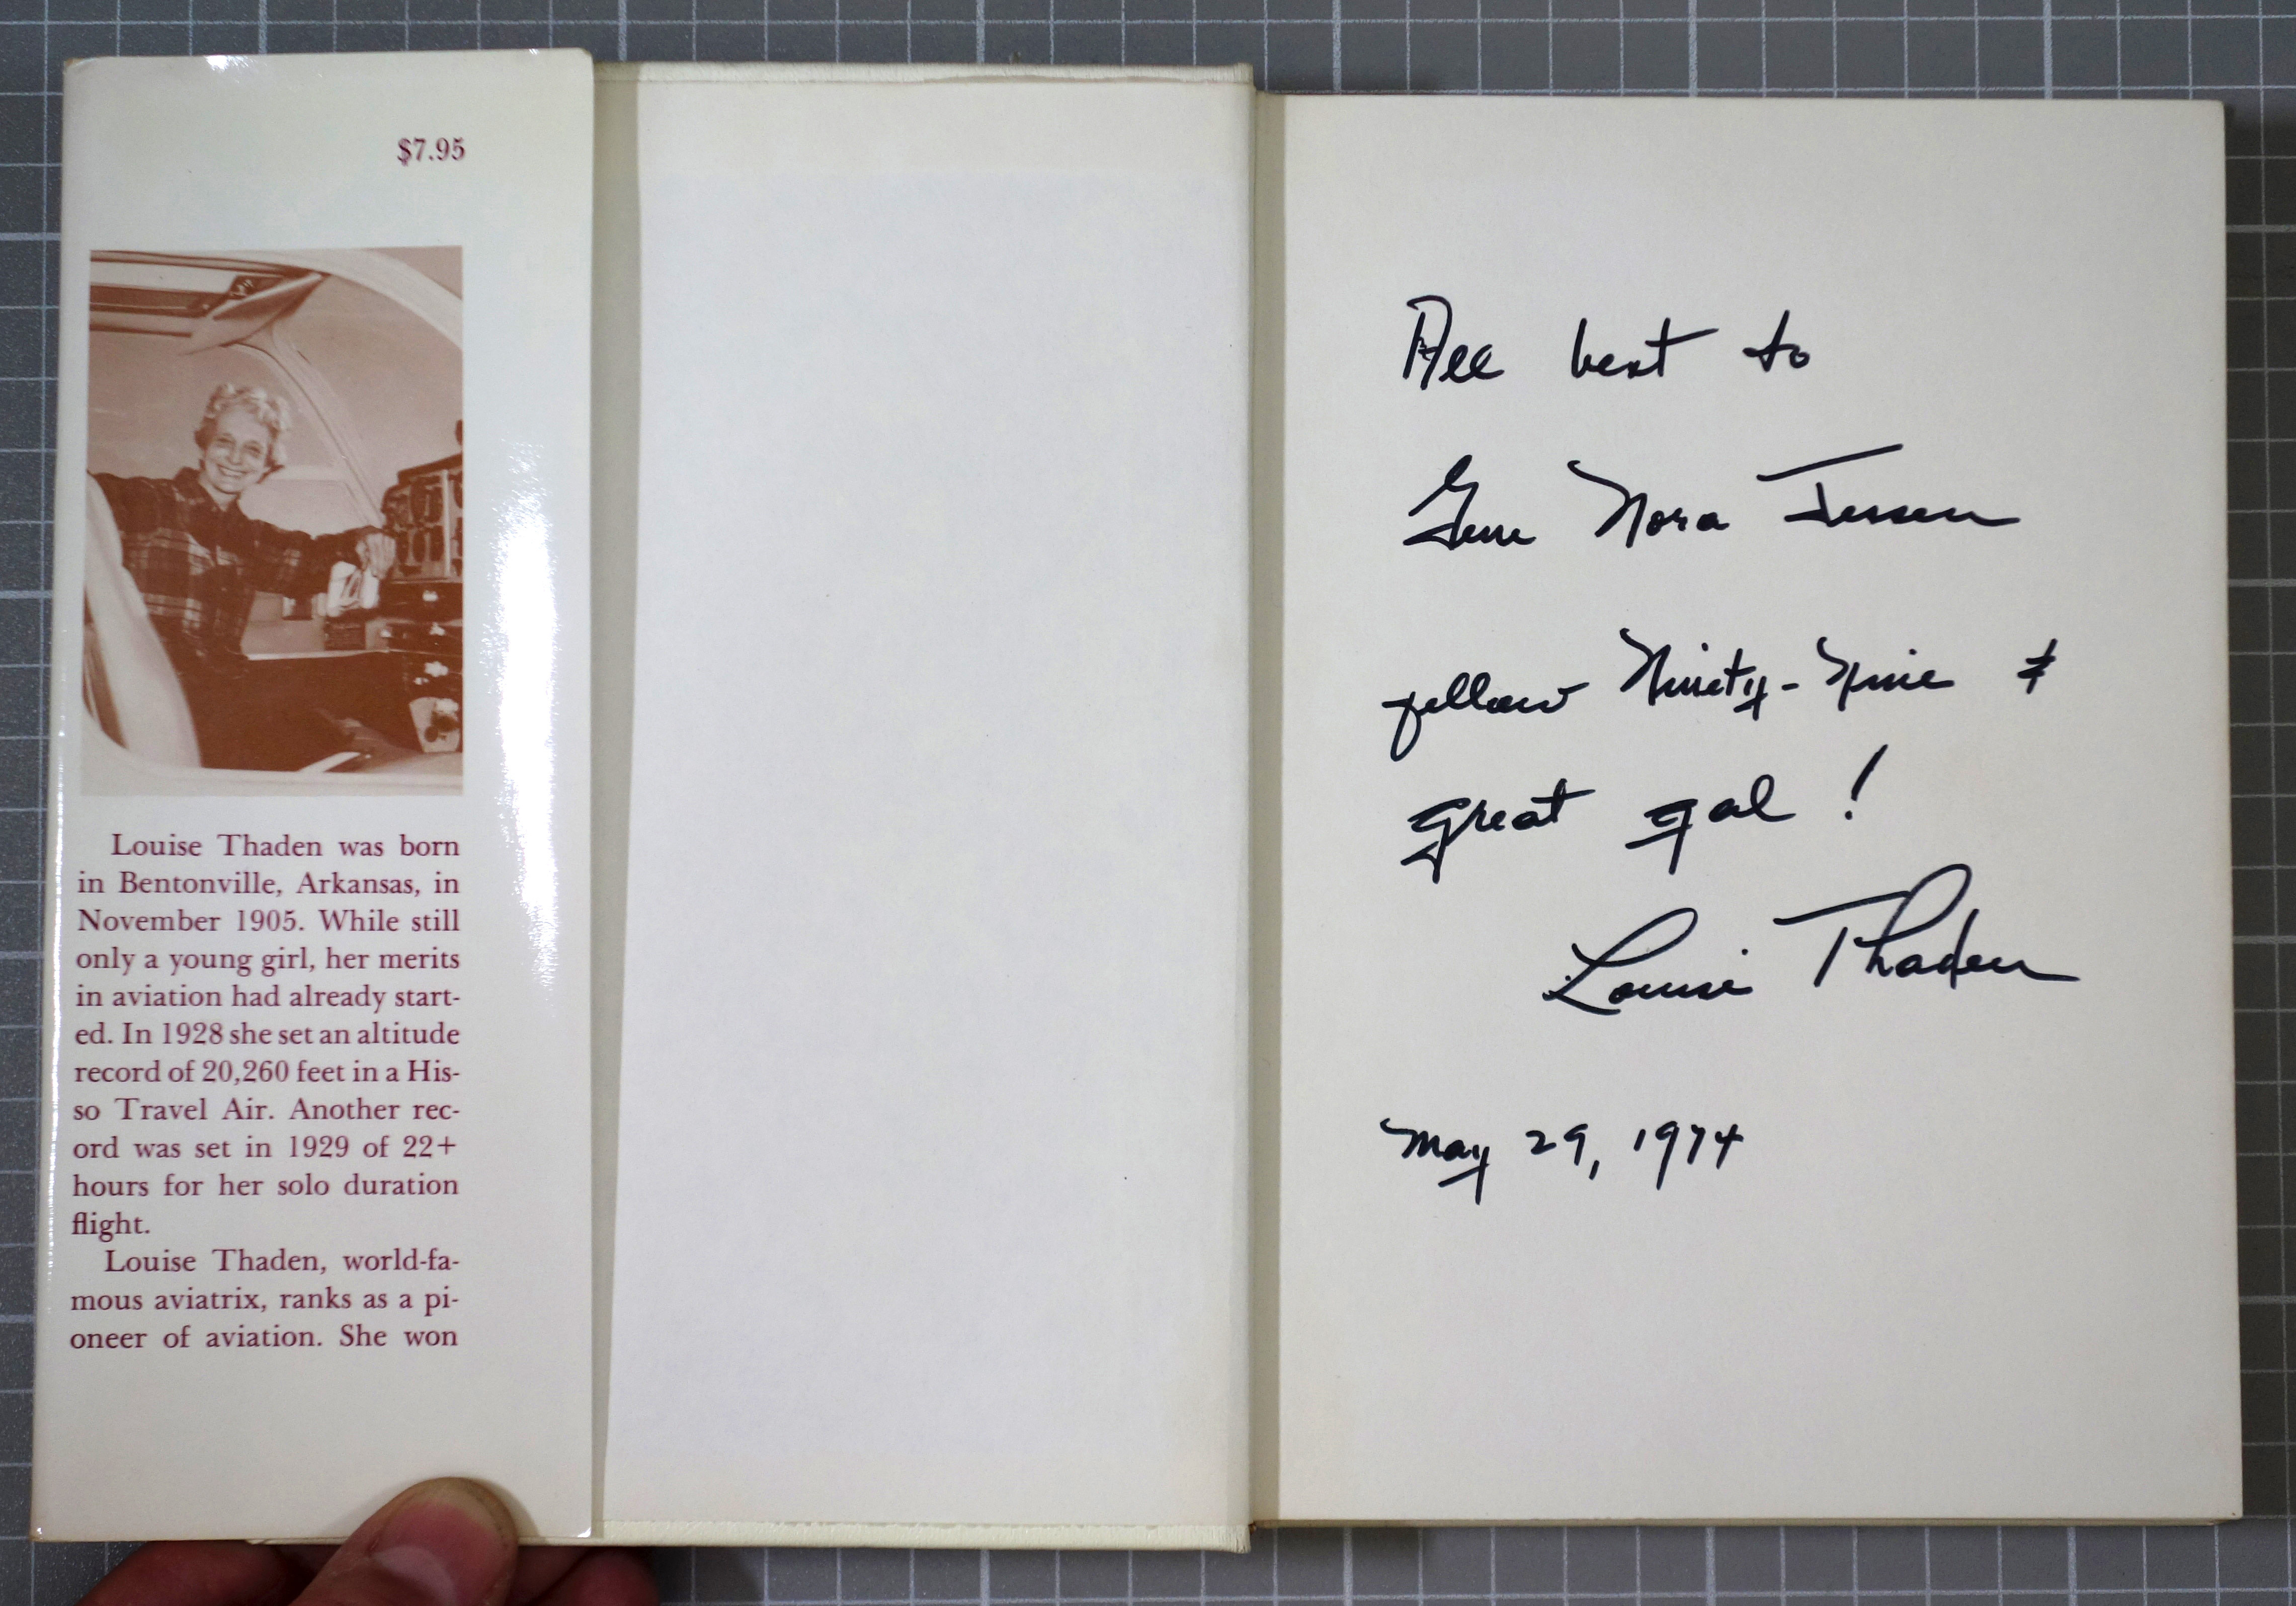 $7.95
Louise Thaden was born
in Bentonville, Arkansas, in
November 1905. While still
only a young girl, her merits
in aviation had already start-
ed. In 1928 she set an altitude
record of 20,260 feet in a His-
so Travel Air. Another rec-
ord was set in 1929 of 22+
hours for her solo duration
flight.
Louise Thaden, world-fa-
mous aviatrix, ranks as a pi-
oneer of aviation. She won
All best to
Gene Nora Jessen
fellow Ninety-Nine &
great gal!
Louise Thaden
May 29, 1974